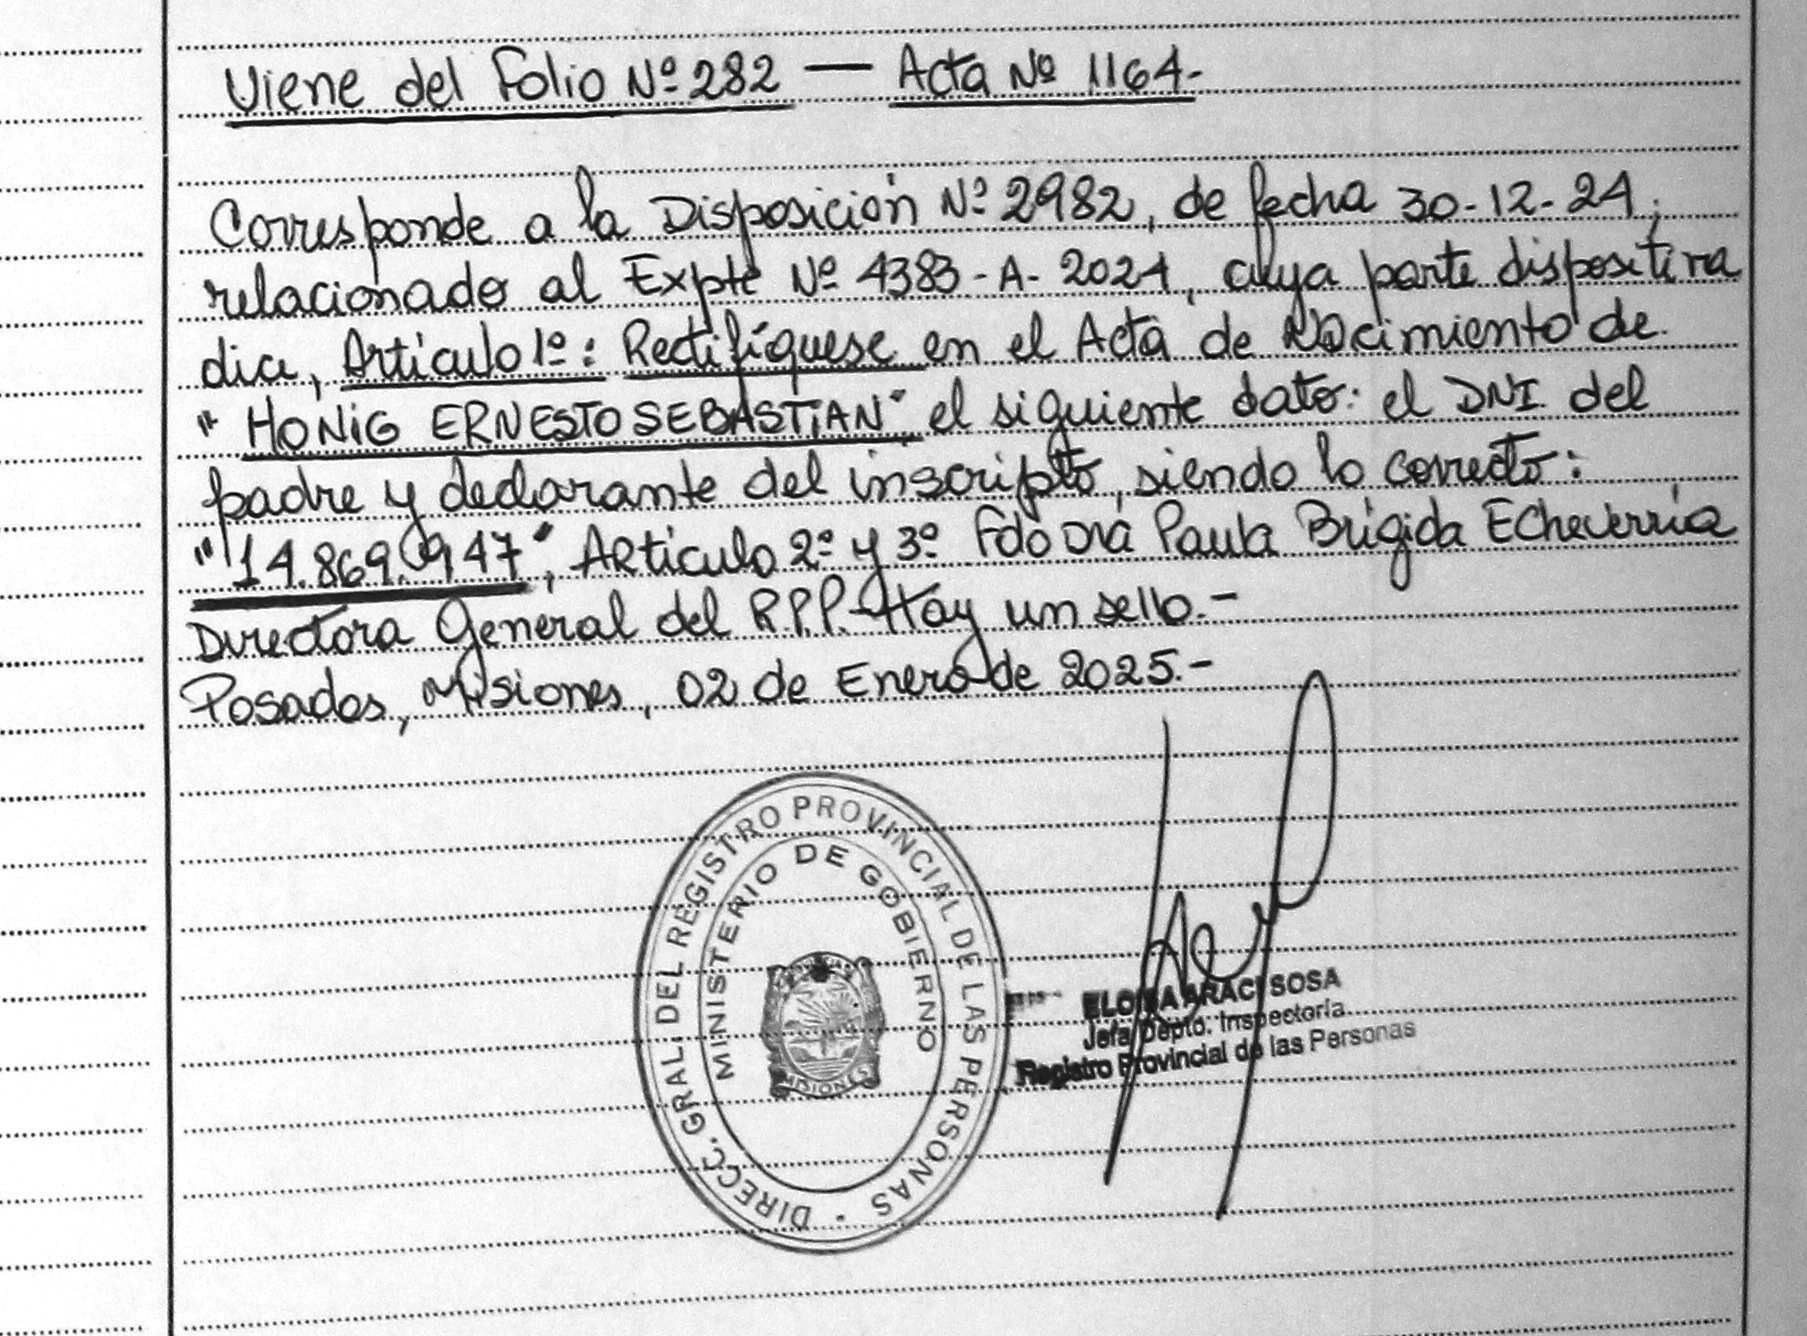 Viene del Folio Nº 282 — Acta Nº 1164.-
Corresponde a la Disposición Nº 2982, de fecha 30-12-24;
relacionado al Expte Nº 4383-A-2024, cuya parte dispositiva
dice, Artículo 1º: Rectifíquese en el Acta de Nacimiento de
"HONIG ERNESTO SEBASTIAN" el siguiente dato: el DNI del
padre y declarante del inscripto, siendo lo correcto:
"14.869.947", Artículo 2º y 3º Fdo Dra Paula Brígida Echeverría
Directora General del R.P.P. Hay un sello.-
Posadas, Misiones, 02 de Enero de 2025.-
DIRECC. GRAL. DEL REGISTRO PROVINCIAL DE LAS PERSONAS
MINISTERIO DE GOBIERNO
MISIONES
ELOISA ARACI SOSA
Jefa Depto. Inspectoría
Registro Provincial de las Personas